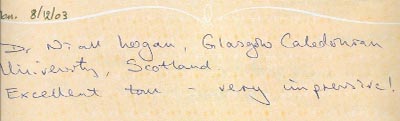 Mon. 8/12/03
Dr Niall Logan, Glasgow Caledonian
University, Scotland
Excellent tour – very impressive!